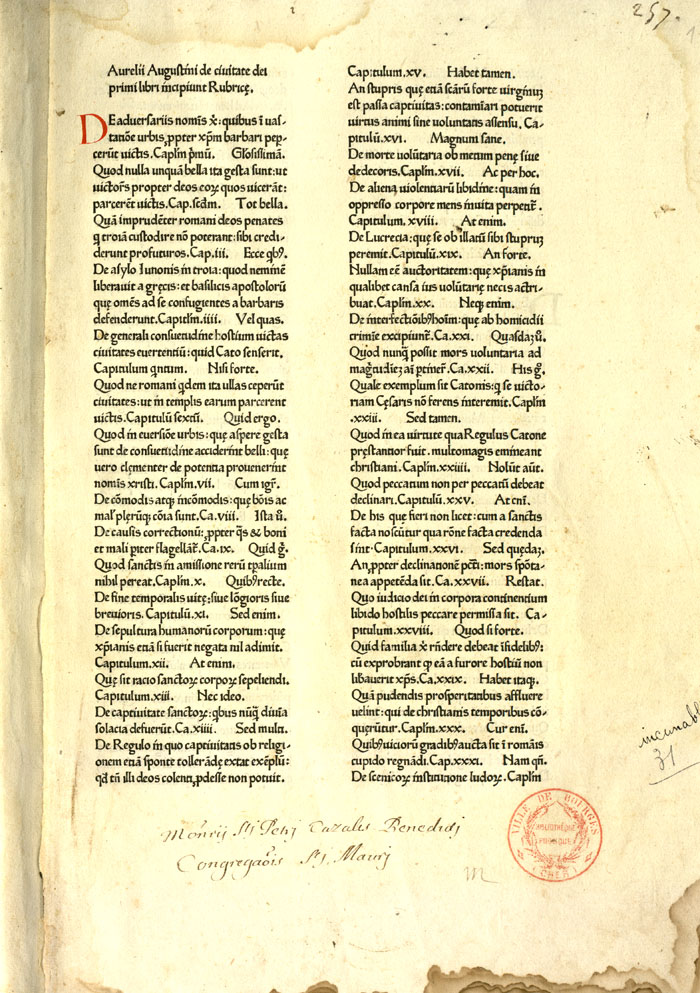 257.
Aurelii Augustini de ciuitate dei
primi libri incipiunt Rubricę.
DE aduersariis nomīs x̄: quibus ī uas-
tatiōe urbis, ꝓpter xp̄m barbari pep-
cerūt uictis. Caplm̄ p̄mū. Glosissimā.
Quod nulla unquā bella ita gesta sunt: ut
uictores propter deos eoꝝ quos uicerāt:
parcerēt uictis. Cap. secd̄m. Tot bella.
Quā imprudēter romani deos penates
q̄ troiā custodire nō poterant: sibi credi-
derunt profuturos. Cap. iii. Ecce qbꝰ.
De asylo Iunonis in troia: quod neminē
liberauit a gręcis: et basilicis apostolorū
que omēs ad se confugientes a barbaris
defenderunt. Capitlm̄. iiii. Vel quas.
De generali consuetudine hostium uictas
ciuitates euertentiū: quid Cato senserit.
Capitulum qntum. Nisi forte.
Quod ne romani qdem ita ullas ceperūt
ciuitates: ut in templis earum parcerent
uictis. Capitulū sextū. Quid ergo.
Quod in euersiōe urbis: quę aspere gesta
sunt de consuetudine acciderint belli: quę
uero clemēter de potentia prouenerint
nomīs xristi. Caplm̄. vii. Cum igr̄.
De cōmodis atqꝫ incōmodis: quę bōis ac
mal̓ plerūqꝫ cōia sunt. Ca. viii. Ista ū.
De causis correctionū: ꝓpter qs & boni
et mali piter flagellāt̄. Ca. ix. Quid g̊.
Quod sanctis in amissione rerū tꝑalium
nihil pereat. Caplm̄. x. Quibꝰ recte.
De fine temporalis uitę: siue lōgioris siue
breuioris. Capitulū. xi. Sed enim.
De sepultura humanorū corporum: quę
xp̄ianis etiā si fuerit negata nil adimit.
Capitulum. xii. At enim.
Quę sit racio sanctoꝝ corpora sepeliendi.
Capitulum. xiii. Nec ideo.
De captiuitate sanctoꝝ: qbus nūq̄ diuīa
solacia defuerūt. Ca. xiiii. Sed multi.
De Regulo in quo captiuitatis ob religi-
onem etiā sponte tollerādę extat exēplū:
qd̄ tn̄ illi deos colenti, ꝓdesse non potuit.
Capitulum. xv. Habet tamen.
An stupris quę etiā scārū forte virginuꝫ
est passa captiuitas: contamīari potuerit
uirtus animi sine voluntatis assensu. Ca-
pitulū. xvi. Magnum sane.
De morte volūtaria ob metum penę siue
dedecoris. Caplm̄. xvii. Ac per hoc.
De aliena violentiarū libidine: quam in
oppresso corpore mens inuita perpetit̄.
Capitulum. xviii. At enim.
De Lucrecia: quę se ob illatū sibi stupruꝫ
peremit. Capitulū. xix. An forte.
Nullam eē auctoritatem: quę xp̄ianis in
qualibet causa ius volūtarię necis attri-
buat. Caplm̄. xx. Neqꝫ enim.
De interfectiōibꝰ hoīm: quę ab homicidii
crimīe excipiunt̄. Ca. xxi. Quasdaꝫ ū.
Quod nunq̄ possit mors voluntaria ad
magītudieꝫ ai ꝑtiner̄. Ca. xxii. His g̊.
Quale exemplum sit Catonis: q se victo-
riam Cęsaris nō ferens interemit. Caplm̄
.xxiii. Sed tamen.
Quod in ea uirtute qua Regulus Catone
pręstantior fuit. multomagis emineant
christiani. Caplm̄. xxiiii. Nolūt aūt.
Quod peccatum non per peccatū debeat
declinari. Capitulū. xxv. At eni.
De his quę fieri non licet: cum a sanctis
facta noscūtur qua rōne facta credenda
sint. Capitulum. xxvi. Sed quędaꝫ.
An, ꝓpter declinationē pcc̄ti: mors spōta-
nea appetēda sit. Ca. xxvii. Restat.
Quo iudicio dei in corpora continentium
libido hostilis peccare permissa sit. Ca-
pitulum. xxviii. Quod si forte.
Quid familia x̄ rn̄dere debeat īfidelibꝰ:
cū exprobrant qꝫ eā a furore hostiū non
libauerit xp̄s. Ca. xxix. Habet itaqꝫ.
Quā pudendis prosperitatibus affluere
uelint: qui de christianis temporibus cō-
quęrūtur. Caplm̄. xxx. Cur eni.
Quibꝰ viciorū gradibꝰ aucta sit ī romāis
cupido regnādi. Cap. xxxi. Nam qn̄.
De scenicoꝝ institutione ludoꝝ. Caplm̄
incunable
31
Mon̄rij Sti Petrj Cazalis Benedictj
Congregaōis Sti Maurj
m
VILLE DE BOURGES
BIBLIOTHÈQUE
PUBLIQUE
(CHER)